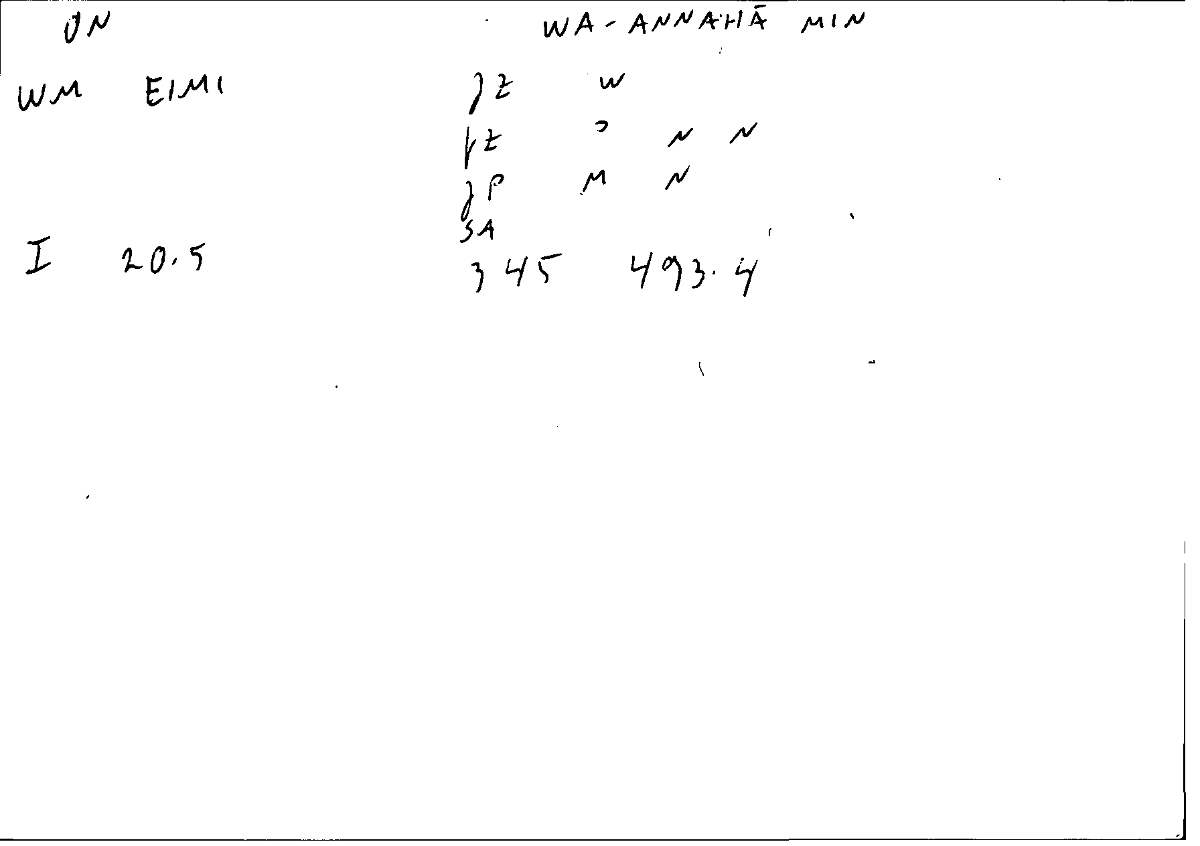 ON WA-ANNAHĀ MIN
WM EIMI
JZ W
PZ ʾ N N
JP M N
SA
I 20.5 345 493.4